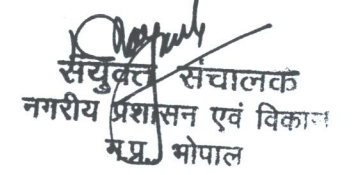 संयुक्त संचालक
नगरीय प्रशासन एवं विकास
म.प्र. भोपाल